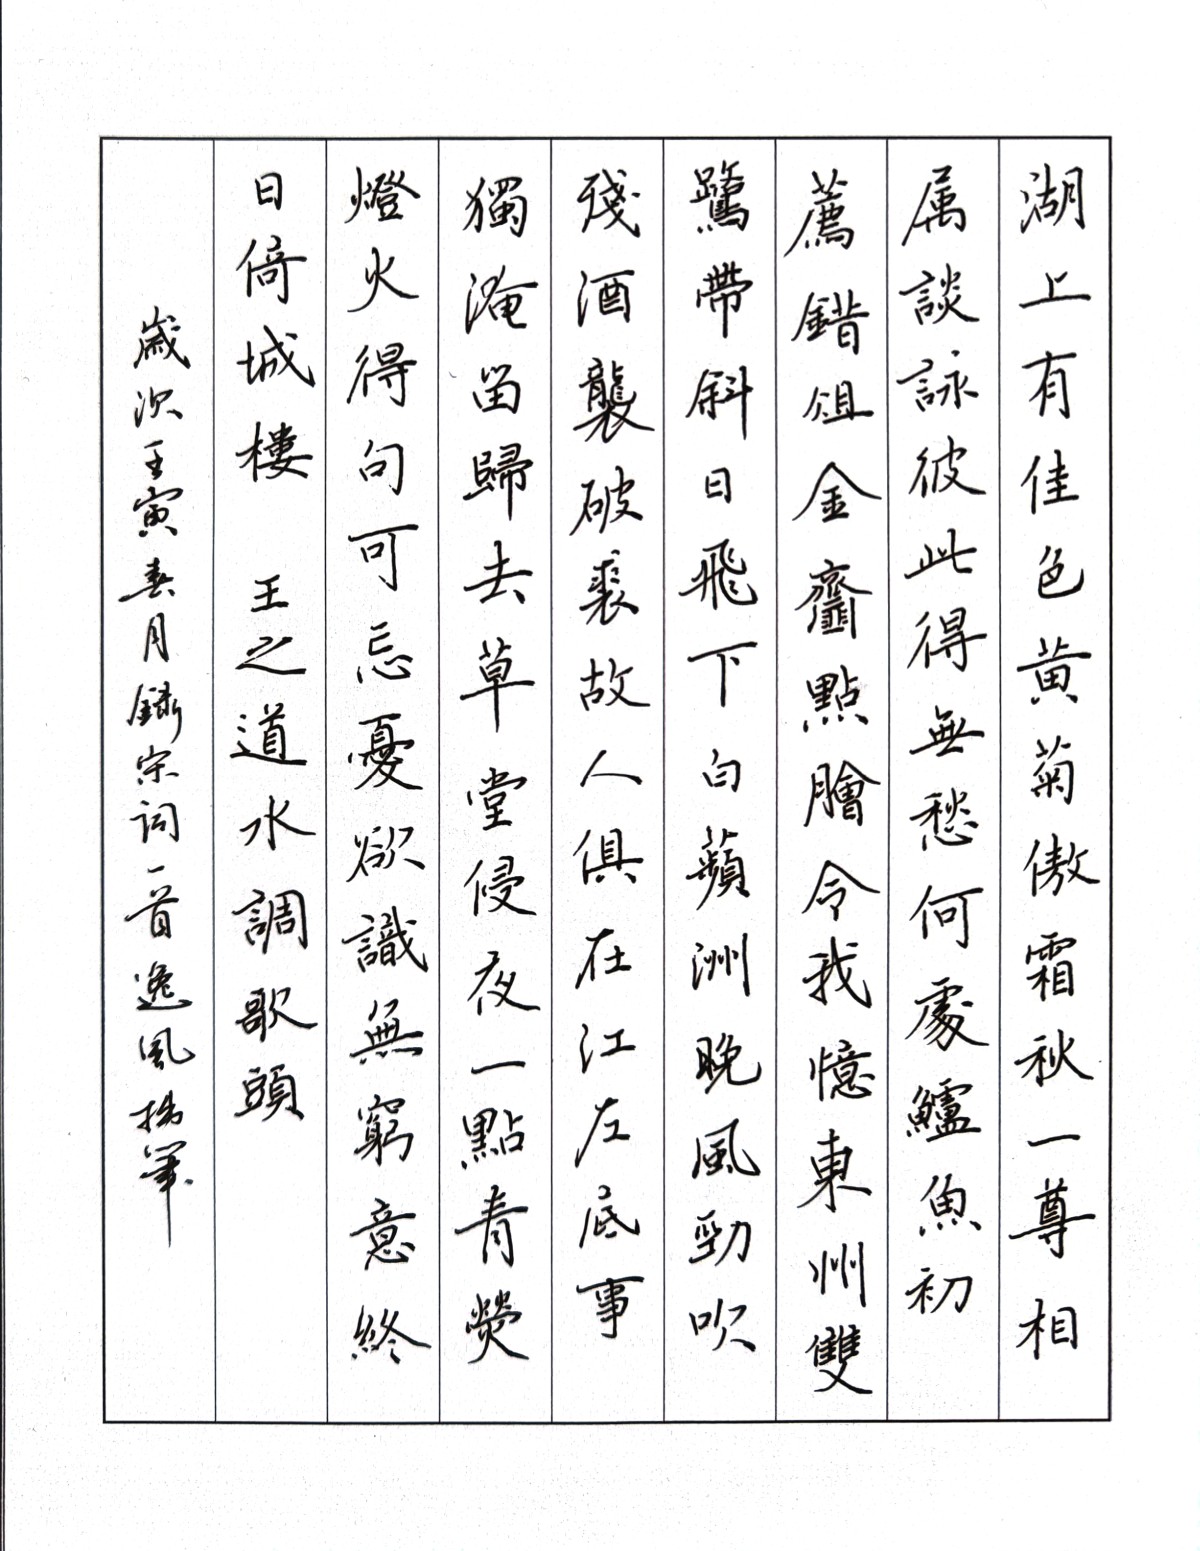 湖上有佳色黄菊傲霜秋一尊相
属談詠彼此得無愁何處鱸魚初
薦錯俎金齏點膾令我憶東州雙
鷺帶斜日飛下白蘋洲晚風勁吹
殘酒襲破裘故人俱在江左底事
獨淹留歸去草堂侵夜一點青熒
燈火得句可忘憂欲識無窮意終
日倚城樓 王之道水調歌頭
歲次壬寅春月録宋詞一首逸風拙筆